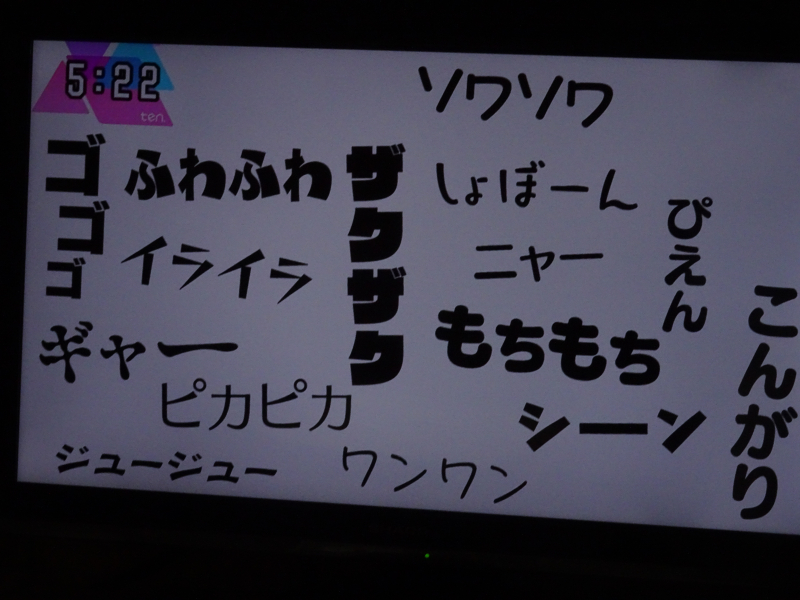 5:22
ten.
ソワソワ
ゴゴゴ
ふわふわ
ザクザク
しょぼーん
ぴえん
イライラ
ニャー
こんがり
ギャー
もちもち
ピカピカ
シーン
ジュージュー
ワンワン